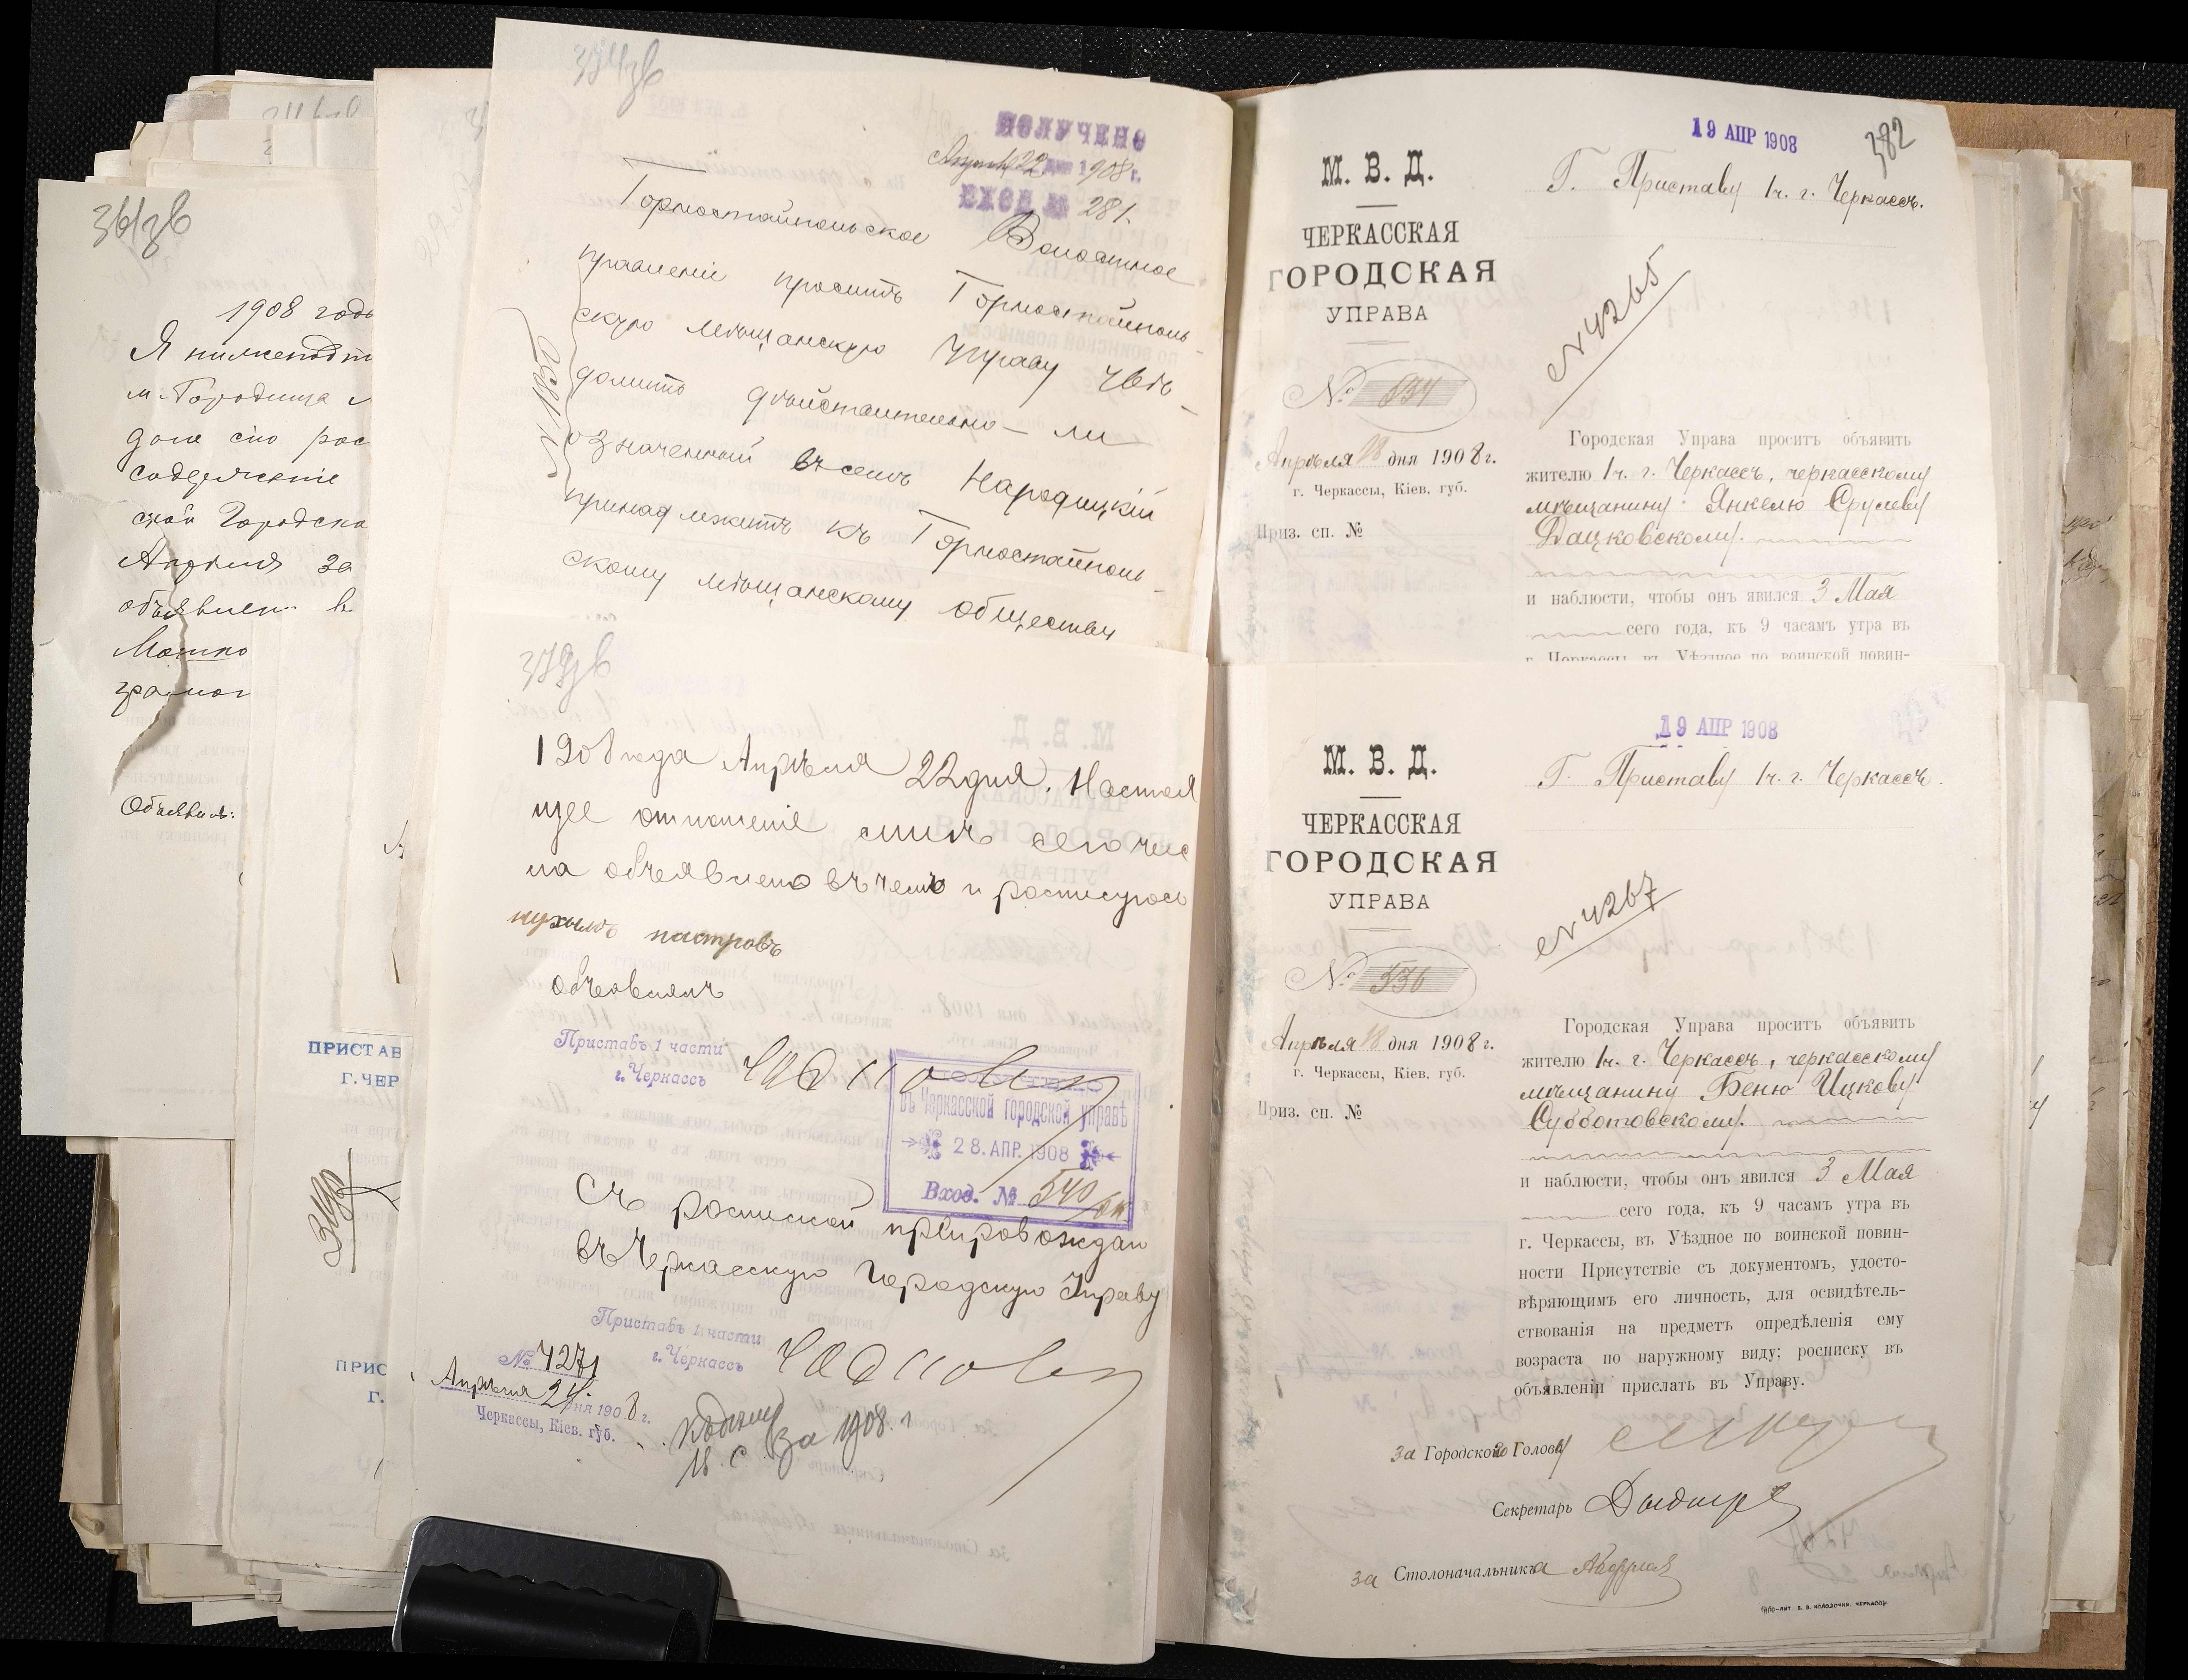 361зв
1908 года
Я нижеподп
м. Городища
дал сію рос
содержаніе
ской Городско
Апрѣля
объявлен в
Мотко
грамот
Объявилъ:
ПРИСТАВ
Г. ЧЕР
ПРИС
Г.
ПОЛУЧЕНО
Апрѣля 22 дня 1908 г.
ВХОД № 281.
Горностайпольское Волостное
правленіе проситъ Горностайполь-
скую мѣщанскую Управу увѣ-
домить дѣйствительно-ли
означенный въ семъ Народицкій
принадлежитъ къ Горностайполь-
скому мѣщанскому обществу
379зв
1908 года Апрѣля 22 дня. Настоя
щее отношеніе мнѣ сего чис
ла объявлено въ чемъ и росписуюсь
объявилъ
Приставъ 1 части
г. Черкассъ
въ Черкасской городской управѣ
28. АПР. 1908
Вход. № 540
Съ роспиской препровождаю
въ Черкасскую Городскую Управу
Приставъ 1 части
г. Черкассъ
№ 4271
Апрѣля 24 дня 1908 г.
Черкассы, Кіев. губ.
за 1908 г
19 АПР 1908
382
М. В. Д.
Г. Приставу 1 ч. г. Черкассъ.
ЧЕРКАССКАЯ
ГОРОДСКАЯ
УПРАВА
№ 4265
№ 534
Апрѣля 18 дня 1908 г.
г. Черкассы, Кіев. губ.
Приз. сп. №
Городская Управа проситъ объявить
жителю 1 ч. г. Черкассъ, черкасскому
мѣщанину Янкелю Срулеву
Дацковскому.
и наблюсти, чтобы онъ явился 3 Мая
сего года, къ 9 часамъ утра въ
г. Черкассы, въ Уѣздное по воинской повин-
19 АПР 1908
М. В. Д.
Г. Приставу 1 ч. г. Черкассъ.
ЧЕРКАССКАЯ
ГОРОДСКАЯ
УПРАВА
№ 4267
№ 536
Апрѣля 18 дня 1908 г.
г. Черкассы, Кіев. губ.
Приз. сп. №
Городская Управа проситъ объявить
жителю 1 ч. г. Черкассъ, черкасскому
мѣщанину Беню Ицкову
Субботовскому.
и наблюсти, чтобы онъ явился 3 Мая
сего года, къ 9 часамъ утра въ
г. Черкассы, въ Уѣздное по воинской повин-
ности Присутствіе съ документомъ, удосто-
вѣряющимъ его личность, для освидѣтель-
ствованія на предметъ опредѣленія ему
возраста по наружному виду; росписку въ
объявленіи прислать въ Управу.
За Городского Голову
Секретарь
За Столоначальника